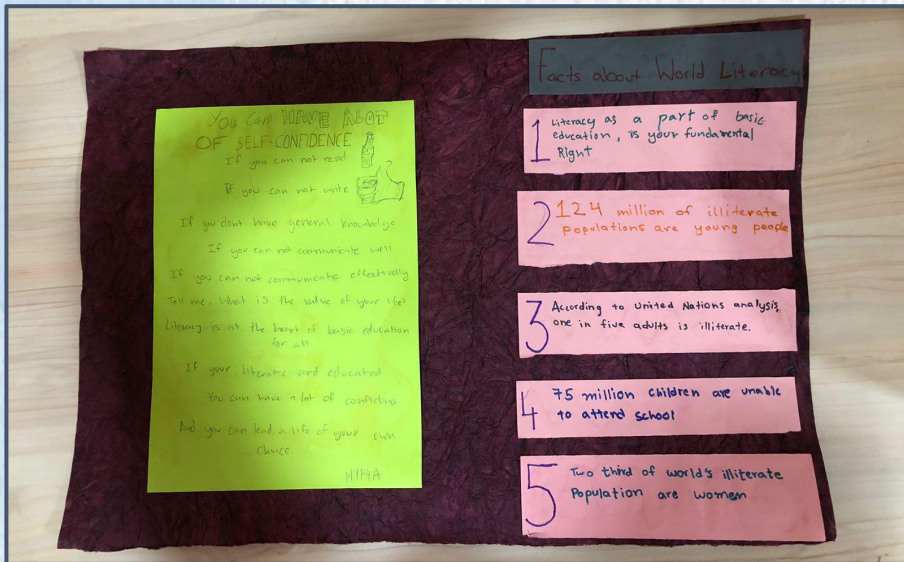 You Can HAVE ALOT
OF SELF-CONFIDENCE
If you can not read
If you can not write
If you dont have general knowledge
If you can not communicate well
If you can not communicate effectively
Tell me, What is the value of your life?
Literacy is at the heart of basic education
for all
If your literate and educated
You can have a lot of confidence
And you can lead a life of your own
choice
MYP4A
Facts about World Literacy
1 Literacy as a part of basic
education, is your fundamental
Right
2 124 million of illiterate
populations are young people
3 According to United Nations analysis,
one in five adults is illiterate.
4 75 million children are unable
to attend school
5 Two third of world's illiterate
Population are women